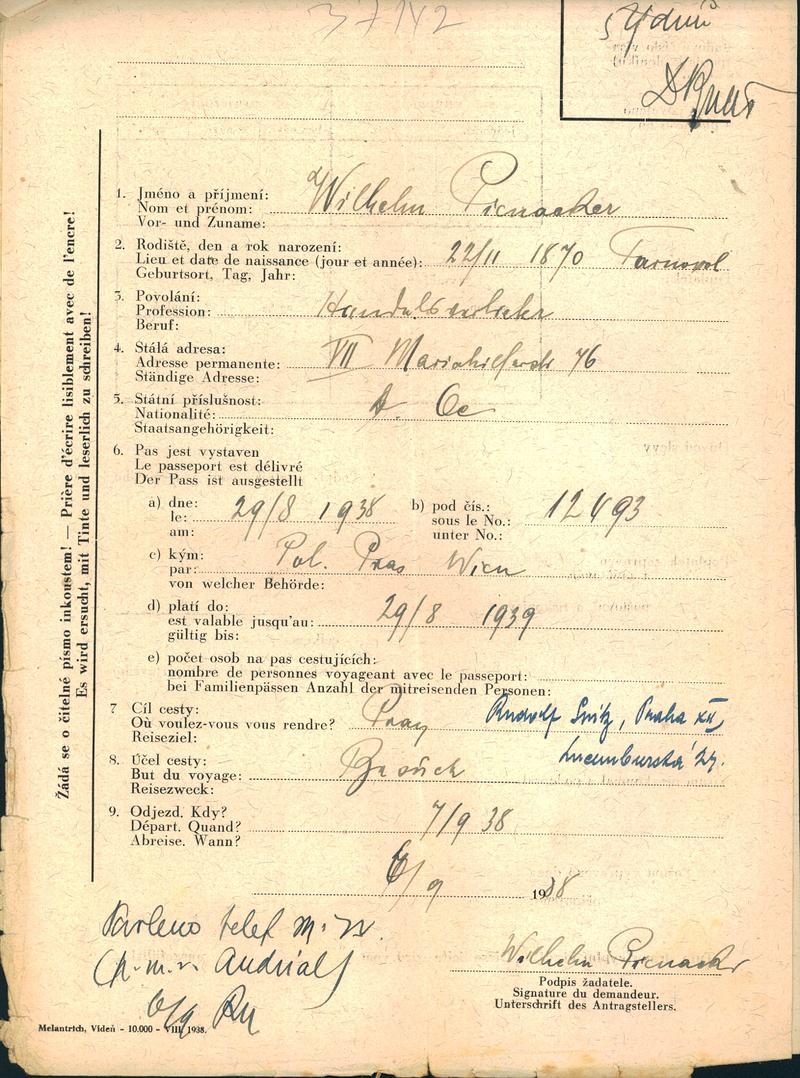 37142
5 týdnů
Žádá se o čitelné písmo inkoustem! — Prière d'écrire lisiblement avec de l'encre!
Es wird ersucht, mit Tinte und leserlich zu schreiben!
1. Jméno a příjmení:
Nom et prénom: Wilhelm
Vor- und Zuname:
2. Rodiště, den a rok narození:
Lieu et date de naissance (jour et année): 22/11 1870 Tarnopol
Geburtsort, Tag, Jahr:
3. Povolání:
Profession:
Beruf:
4. Stálá adresa:
Adresse permanente: VII Mariahilferstr 76
Ständige Adresse:
5. Státní příslušnost:
Nationalité:
Staatsangehörigkeit:
6. Pas jest vystaven
Le passeport est délivré
Der Pass ist ausgestellt
a) dne:
le: 29/8 1938
am:
b) pod čís.:
sous le No.:
unter No.:
c) kým:
par: Pol. Pras Wien
von welcher Behörde:
d) platí do:
est valable jusqu'au: 29/8 1939
gültig bis:
e) počet osob na pas cestujících:
nombre de personnes voyageant avec le passeport:
bei Familienpässen Anzahl der mitreisenden Personen:
7 Cíl cesty:
Où voulez-vous vous rendre? Prag Rudolf Praha XII,
Reiseziel: Lucemburská 24.
8. Účel cesty:
But du voyage: Besuch
Reisezweck:
9. Odjezd. Kdy?
Départ. Quand? 7/9 38
Abreise. Wann?
6/9 1938
telef
Wilhelm
Podpis žadatele.
Signature du demandeur.
Unterschrift des Antragstellers.
6/9
Melantrich, Vídeň - 10.000 - VIII. 1938.